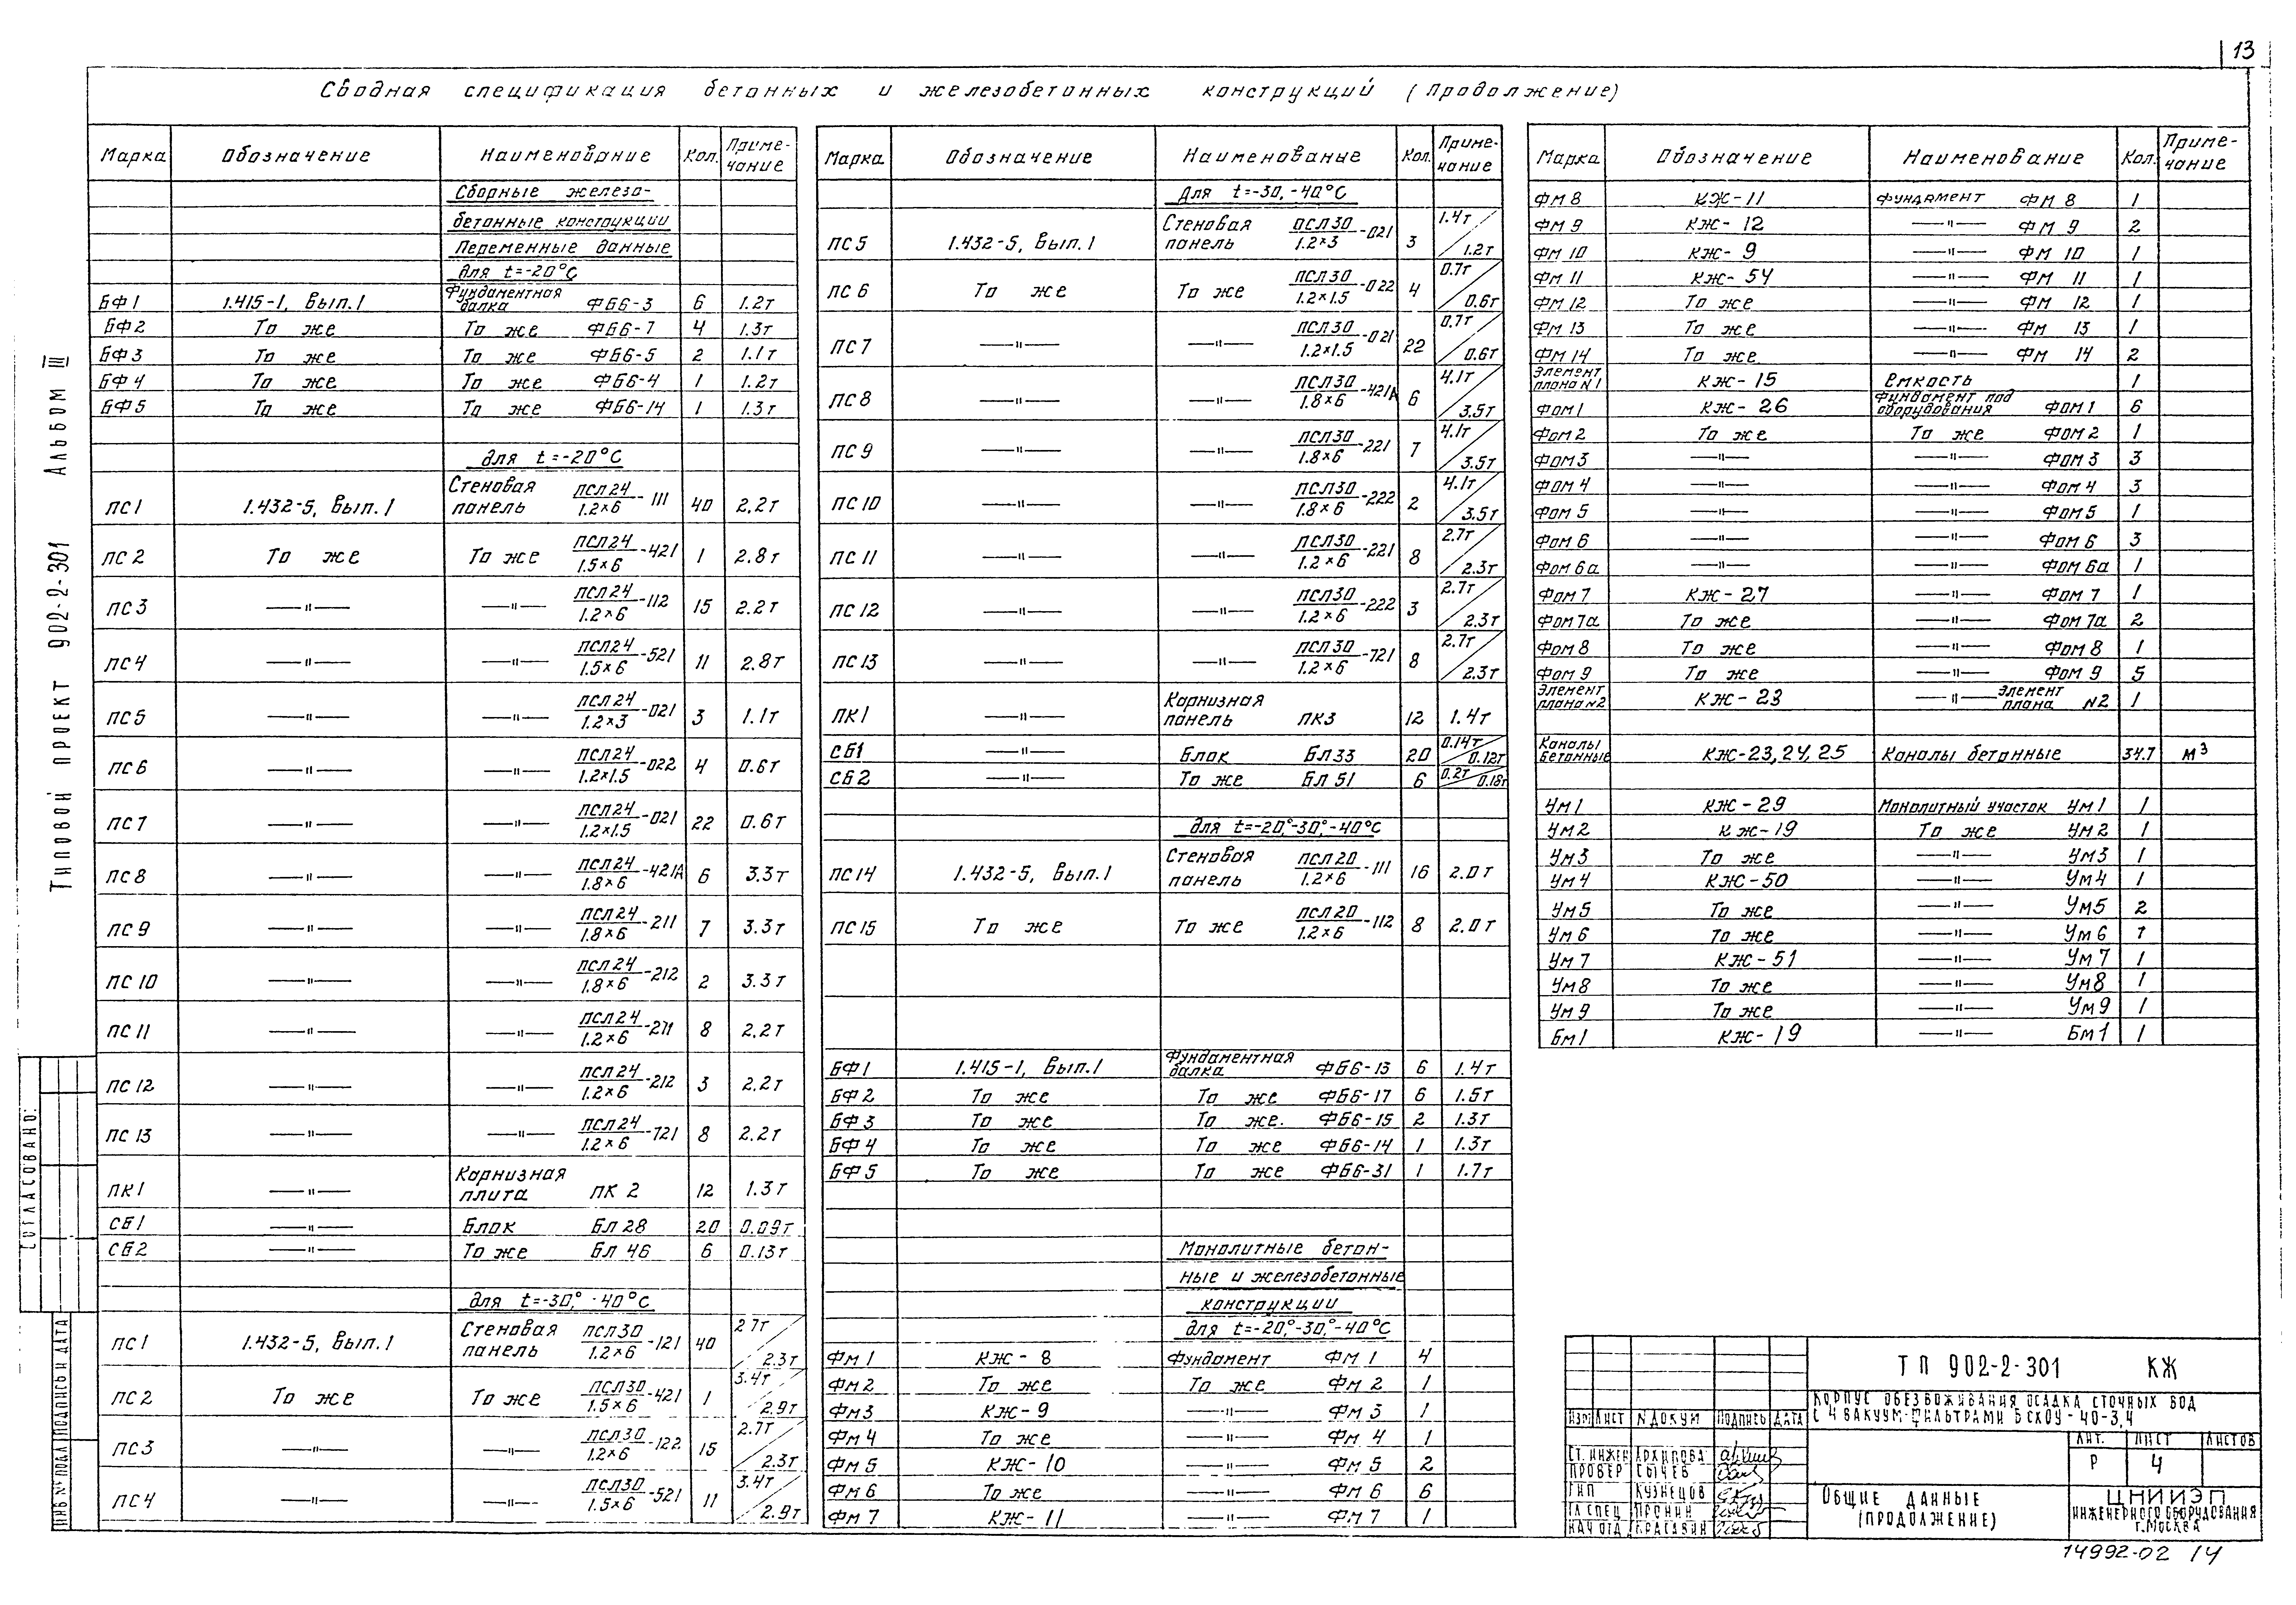 13
Сводная спецификация бетонных и железобетонных конструкций (продолжение)
Марка Обозначение Наименование Кол. Приме-чание
Сборные железо-
бетонные конструкции
Переменные данные
для t=-20°С
БФ1 1.415-1, Вып.1 Фундаментная балка ФБ6-3 6 1.2т
БФ2 То же То же ФБ6-7 4 1.3т
БФ3 То же То же ФБ6-5 2 1.1т
БФ4 То же То же ФБ6-4 1 1.2т
БФ5 То же То же ФБ6-14 1 1.3т
для t=-20°С
ПС1 1.432-5, Вып.1 Стеновая панель ПСЛ24/1.2×6-111 40 2.2т
ПС2 То же То же ПСЛ24/1.5×6-421 1 2.8т
ПС3 —"— —"— ПСЛ24/1.2×6-112 15 2.2т
ПС4 —"— —"— ПСЛ24/1.5×6-521 11 2.8т
ПС5 —"— —"— ПСЛ24/1.2×3-021 3 1.1т
ПС6 —"— —"— ПСЛ24/1.2×1.5-022 4 0.6т
ПС7 —"— —"— ПСЛ24/1.2×1.5-021 22 0.6т
ПС8 —"— —"— ПСЛ24/1.8×6-421А 6 3.3т
ПС9 —"— —"— ПСЛ24/1.8×6-211 7 3.3т
ПС10 —"— —"— ПСЛ24/1.8×6-212 2 3.3т
ПС11 —"— —"— ПСЛ24/1.2×6-211 8 2.2т
ПС12 —"— —"— ПСЛ24/1.2×6-212 3 2.2т
ПС13 —"— —"— ПСЛ24/1.2×6-721 8 2.2т
ПК1 —"— Карнизная плита ПК2 12 1.3т
СБ1 —"— Блок Бл28 20 0.09т
СБ2 —"— То же Бл46 6 0.13т
для t=-30°, -40°С
ПС1 1.432-5, Вып.1 Стеновая панель ПСЛ30/1.2×6-121 40 2.7т/2.3т
ПС2 То же То же ПСЛ30/1.5×6-421 1 3.4т/2.9т
ПС3 —"— —"— ПСЛ30/1.2×6-122 15 2.7т/2.3т
ПС4 —"— —"— ПСЛ30/1.5×6-521 11 3.4т/2.9т
Марка Обозначение Наименование Кол. Приме-чание
Для t=-30, -40°С
ПС5 1.432-5, Вып.1 Стеновая панель ПСЛ30/1.2×3-021 3 1.4т/1.2т
ПС6 То же То же ПСЛ30/1.2×1.5-022 4 0.7т/0.6т
ПС7 —"— —"— ПСЛ30/1.2×1.5-021 22 0.7т/0.6т
ПС8 —"— —"— ПСЛ30/1.8×6-421А 6 4.1т/3.5т
ПС9 —"— —"— ПСЛ30/1.8×6-221 7 4.1т/3.5т
ПС10 —"— —"— ПСЛ30/1.8×6-222 2 4.1т/3.5т
ПС11 —"— —"— ПСЛ30/1.2×6-221 8 2.7т/2.3т
ПС12 —"— —"— ПСЛ30/1.2×6-222 3 2.7т/2.3т
ПС13 —"— —"— ПСЛ30/1.2×6-721 8 2.7т/2.3т
ПК1 —"— Карнизная панель ПК3 12 1.4т
СБ1 —"— Блок Бл33 20 0.14т/0.12т
СБ2 —"— То же Бл51 6 0.2т/0.18т
для t=-20°,-30°,-40°С
ПС14 1.432-5, Вып.1 Стеновая панель ПСЛ20/1.2×6-111 16 2.0т
ПС15 То же То же ПСЛ20/1.2×6-112 8 2.0т
БФ1 1.415-1, Вып.1 Фундаментная балка ФБ6-13 6 1.4т
БФ2 То же То же ФБ6-17 6 1.5т
БФ3 То же То же. ФБ6-15 2 1.3т
БФ4 То же То же ФБ6-14 1 1.3т
БФ5 То же То же ФБ6-31 1 1.7т
Монолитные бетон-
ные и железобетонные
конструкции
для t=-20°,-30°,-40°С
Фм1 КЖ-8 Фундамент Фм1 4
Фм2 То же То же Фм2 1
Фм3 КЖ-9 —"— Фм3 1
Фм4 То же —"— Фм4 1
Фм5 КЖ-10 —"— Фм5 2
Фм6 То же —"— Фм6 6
Фм7 КЖ-11 —"— Фм7 1
Марка Обозначение Наименование Кол. Приме-чание
Фм8 КЖ-11 Фундамент Фм8 1
Фм9 КЖ-12 —"— Фм9 2
Фм10 КЖ-9 —"— Фм10 1
Фм11 КЖ-54 —"— Фм11 1
Фм12 То же —"— Фм12 1
Фм13 То же —"— Фм13 1
Фм14 То же —"— Фм14 2
Элемент плана N1 КЖ-15 Емкость 1
Фом1 КЖ-26 Фундамент под оборудования Фом1 6
Фом2 То же То же Фом2 1
Фом3 —"— —"— Фом3 3
Фом4 —"— —"— Фом4 3
Фом5 —"— —"— Фом5 1
Фом6 —"— —"— Фом6 3
Фом6а —"— —"— Фом6а 1
Фом7 КЖ-27 —"— Фом7 1
Фом7а То же —"— Фом7а 2
Фом8 То же —"— Фом8 1
Фом9 То же —"— Фом9 5
Элемент плана N2 КЖ-23 —"— Элемент плана N2 1
Каналы бетонные КЖ-23,24,25 Каналы бетонные 34.7 м³
Ум1 КЖ-29 Монолитный участок Ум1 1
Ум2 КЖ-19 То же Ум2 1
Ум3 То же —"— Ум3 1
Ум4 КЖ-50 —"— Ум4 1
Ум5 То же —"— Ум5 2
Ум6 То же —"— Ум6 1
Ум7 КЖ-51 —"— Ум7 1
Ум8 То же —"— Ум8 1
Ум9 То же —"— Ум9 1
Бм1 КЖ-19 —"— Бм1 1
Типовой проект 902-2-301 Альбом III
СОГЛАСОВАНО:
ИНВ № ПОДЛ ПОДПИСЬ И ДАТА
ТП 902-2-301 КЖ
КОРПУС ОБЕЗВОЖИВАНИЯ ОСАДКА СТОЧНЫХ ВОД
С 4 ВАКУУМ-ФИЛЬТРАМИ БСХОУ-40-3,4
ИЗМ ЛИСТ N ДОКУМ ПОДПИСЬ ДАТА
СТ. ИНЖЕН АРХИПОВА
ПРОВЕР СЫЧЕВ
ГИП КУЗНЕЦОВ
ГЛ СПЕЦ ПРОНИН
НАЧ ОТД КРАСАВИН
ЛИТ. ЛИСТ ЛИСТОВ
Р 4
ОБЩИЕ ДАННЫЕ
(ПРОДОЛЖЕНИЕ)
ЦНИИЭП
ИНЖЕНЕРНОГО ОБОРУДОВАНИЯ
г. МОСКВА
14992-02 14